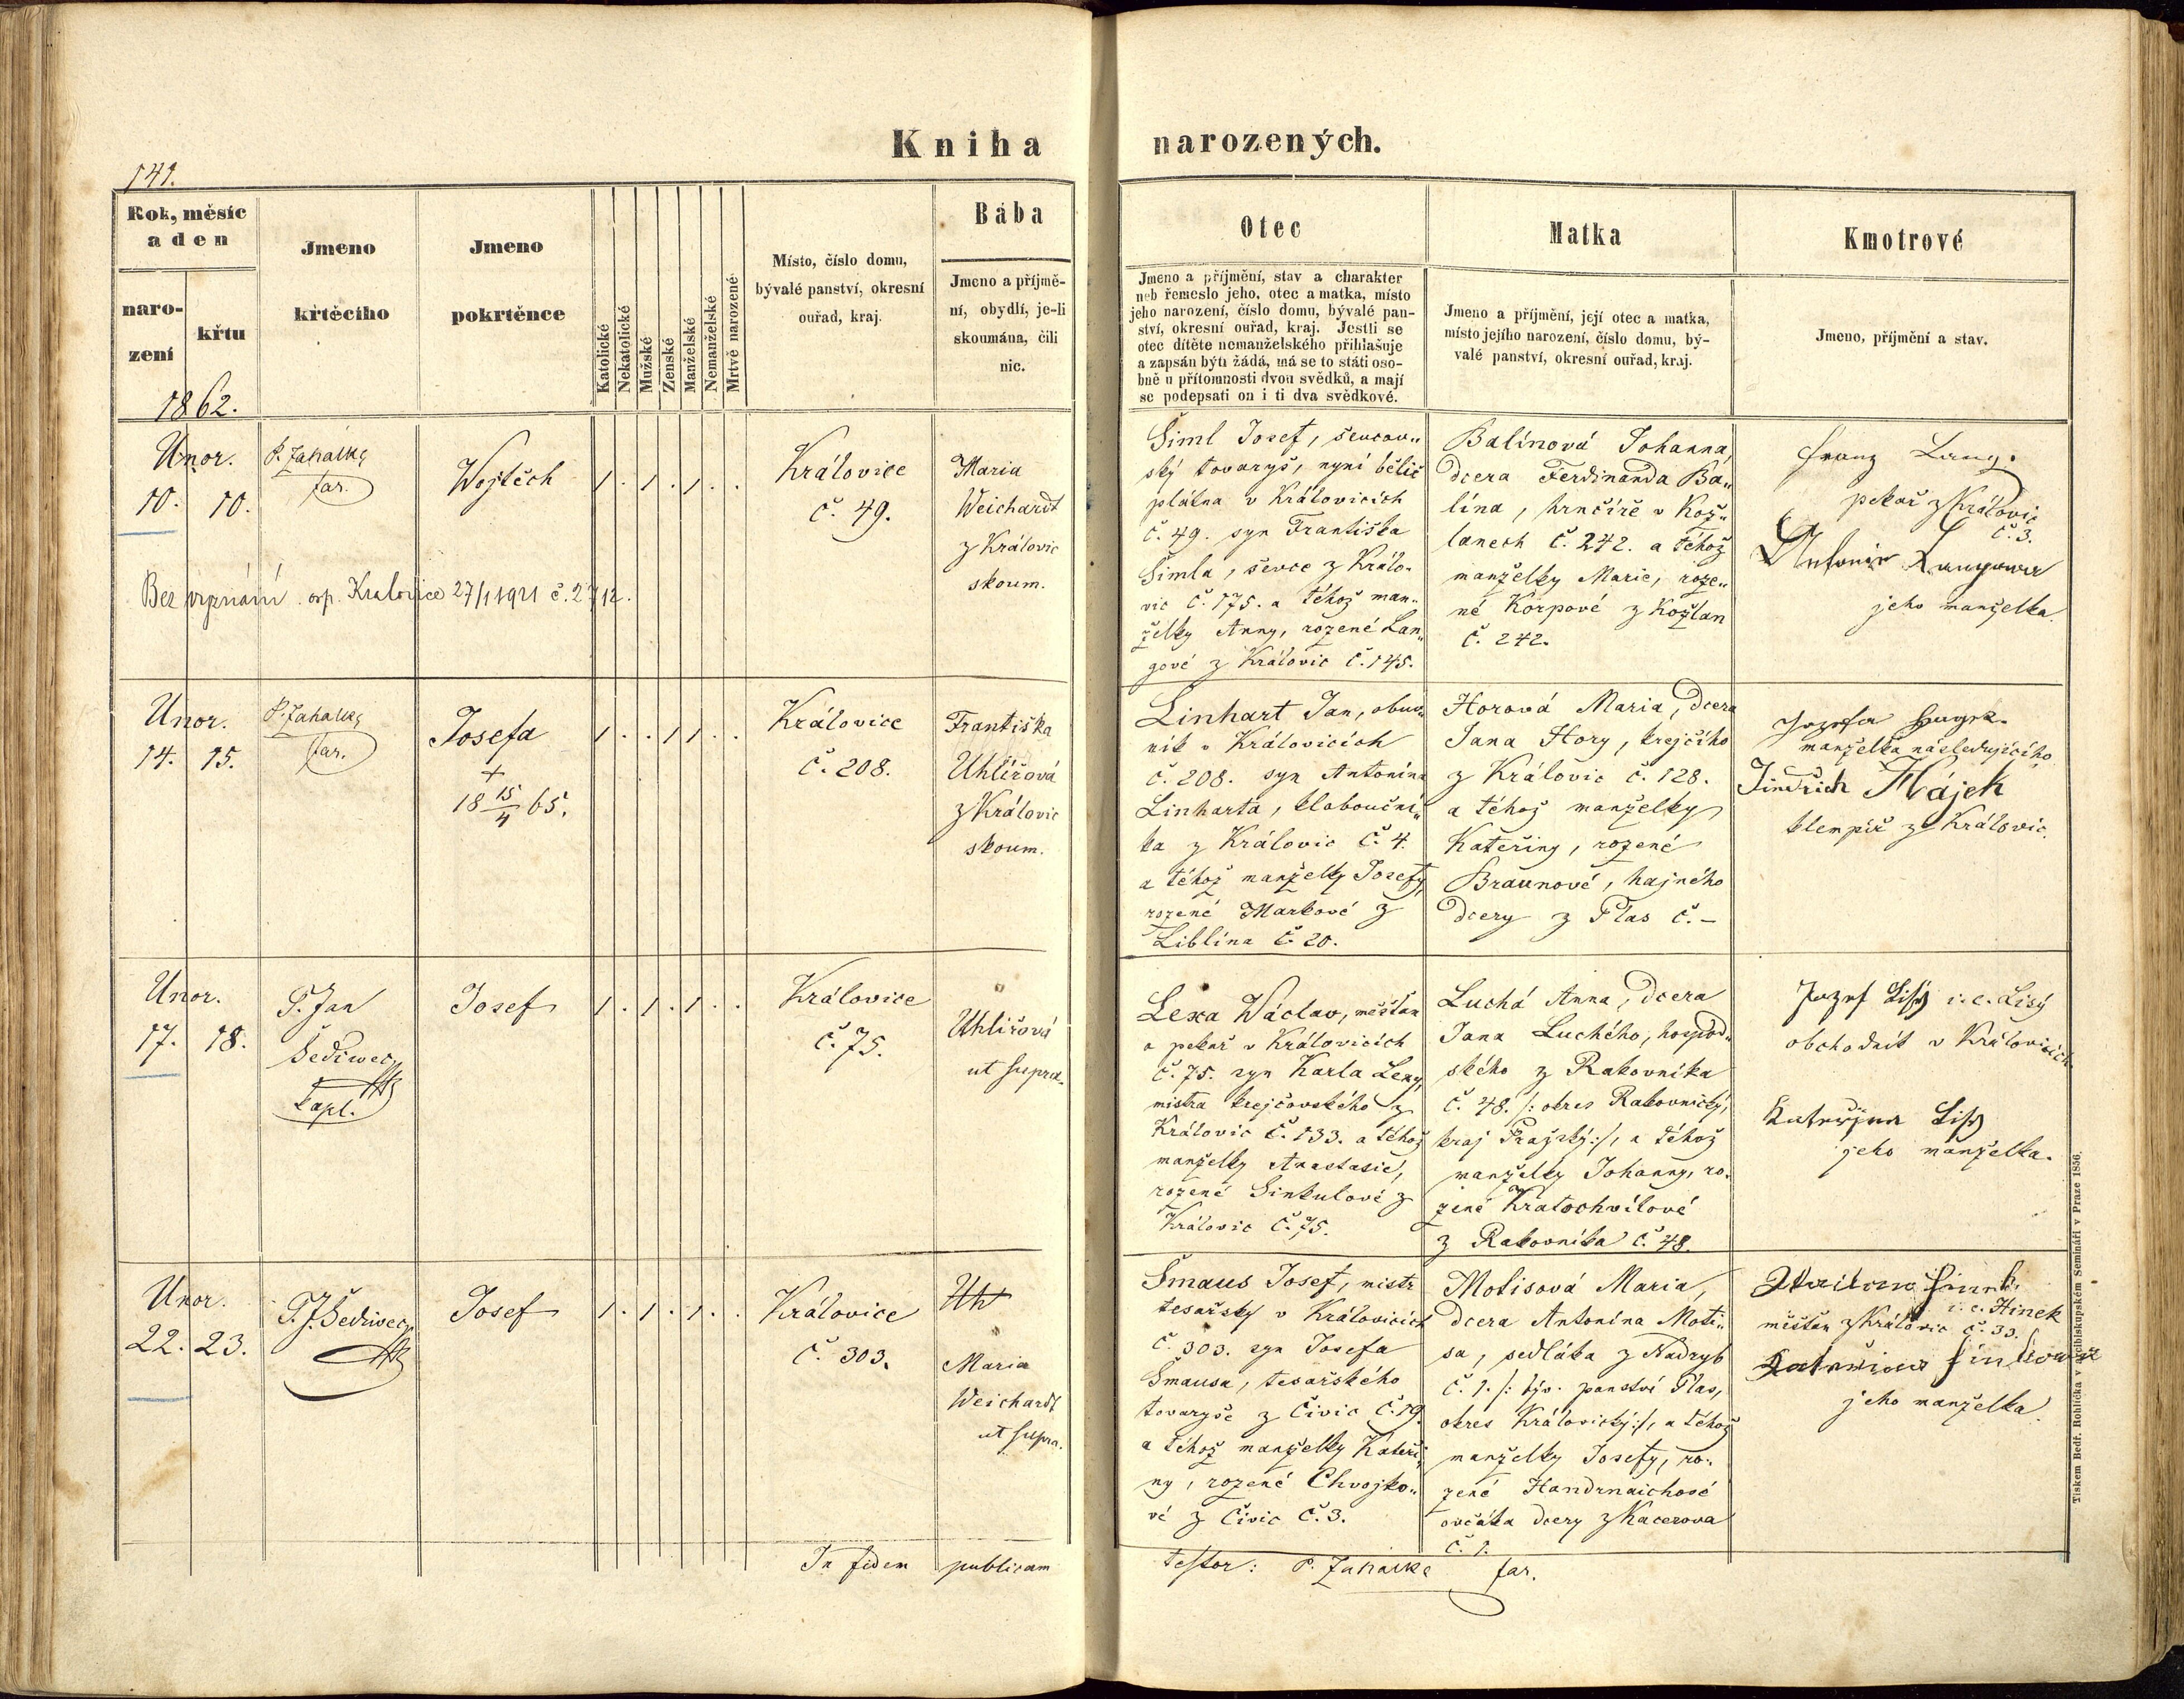 Kniha narozených.
141.
Rok, měsíc
a den
naro-
zení
křtu
1862.
Jmeno
křtěcího
Jmeno
pokrtěnce
Katolické
Nekatolické
Mužské
Zenské
Manželské
Nemanželské
Mrtvě narozené
Místo, číslo domu,
bývalé panství, okresní
ouřad, kraj.
Bába
Jmeno a příjmě-
ní, obydlí, je-li
skoumána, čili
nic.
Otec
Jmeno a příjmění, stav a charakter
neb řemeslo jeho, otec a matka, místo
jeho narození, číslo domu, bývalé pan-
ství, okresní ouřad, kraj. Jestli se
otec dítěte nemanželského přihlašuje
a zapsán býti žádá, má se to státi oso-
bně u přítomnosti dvou svědků, a mají
se podepsati on i ti dva svědkové.
Matka
Jmeno a příjmění, její otec a matka,
místo jejího narození, číslo domu, bý-
valé panství, okresní ouřad, kraj.
Kmotrové
Jmeno, příjmění a stav.
Unor.
10. 10.
P. Zahalka
far.
Wojtěch
1 . 1 . 1 . .
Královice
č. 49.
Maria
Weichardt
z Královic
skoum.
Bez vyznání. osp. Kralovice 27/1 1921 č. 2712.
Šiml Josef, ševcov„
ský tovaryš, nyní bělič
plátna v Královicích
č. 49. syn Františka
Šimla, ševce z Králo„
vic č. 175. a téhož man„
želky Anny, rozené Lan„
gové z Královic č. 145.
Balínová Johanna,
dcera Ferdinanda Ba„
lína, hrnčíře v Kož„
lanech č. 242. a téhož
manželky Marie, roze„
né Korpové z Kožlan
č. 242.
Franz Lang.
pekař z Královic
č. 3.
jeho manželka.
Unor.
14. 15.
P. Zahalka
far.
Josefa
+
18 15/4 65.
1 . . 1 1 . .
Královice
č. 208.
Františka
Uhlířová
z Královic
skoum.
Linhart Jan, obuv„
ník v Královicích
č. 208. syn Antonína
Linharta, kloboučni„
ka z Královic č. 4.
a téhož manželky Josefy,
rozené Markové z
Liblína č. 20.
Horová Maria, dcera
Jana Hory, krejčího
z Královic č. 128.
a téhož manželky
Kateřiny, rozené
Braunové, hajného
dcery z Plas č. –
Jozefa
manželka následujícího
Jindřich Hájek
klempíř z Královic.
Unor.
17. 18.
P. Jan
Šediwec
kapl.
Josef
1 . 1 . 1 . .
Královice
č. 75.
Uhlířová
ut supra.
Lexa Wáclav, měšťan
a pekař v Královicích
č. 75. syn Karla Lexy,
mistra krejčovského z
Královic č. 133. a téhož
manželky Anastasie,
rozené Sinkulové z
Královic č. 75.
Luchá Anna, dcera
Jana Luchého, hospod„
ského z Rakovníka
č. 48. /: okres Rakovnický,
kraj Pražský :/, a téhož
manželky Johanny, ro„
zené Kratochvílové
z Rakovníka č. 48.
Jozef Lisý i. e. Lisý
obchodník v Královicích.
Kateřina Lisý
jeho manželka.
Unor.
22. 23.
P. J. Šediwec
Josef
1 . 1 . 1 . .
Královice
č. 303.
Uh
Maria
Weichardt
ut supra.
Šmaus Josef, mistr
tesařský v Královicích
č. 303. syn Josefa
Šmausa, tesařského
tovaryše z Čivic č. 19.
a téhož manželky Kateři„
ny, rozené Chvojko„
vé z Čivic č. 3.
Motisová Maria,
dcera Antonína Moti„
sa, sedláka z Nadryb
č. 1. /: býv. panství Plas,
okres Královický :/, a téhož
manželky Josefy, ro„
zené Handrnaichové
ovčáka dcery z Kacerova
č. 1.
i. e. Hinek
měšťan z Královic č. 33.
jeho manželka.
In fidem publicam testor: P. Zahalka far.
Tiskem Bedř. Rohlíčka v arcibiskupském Semináři v Praze 1856.